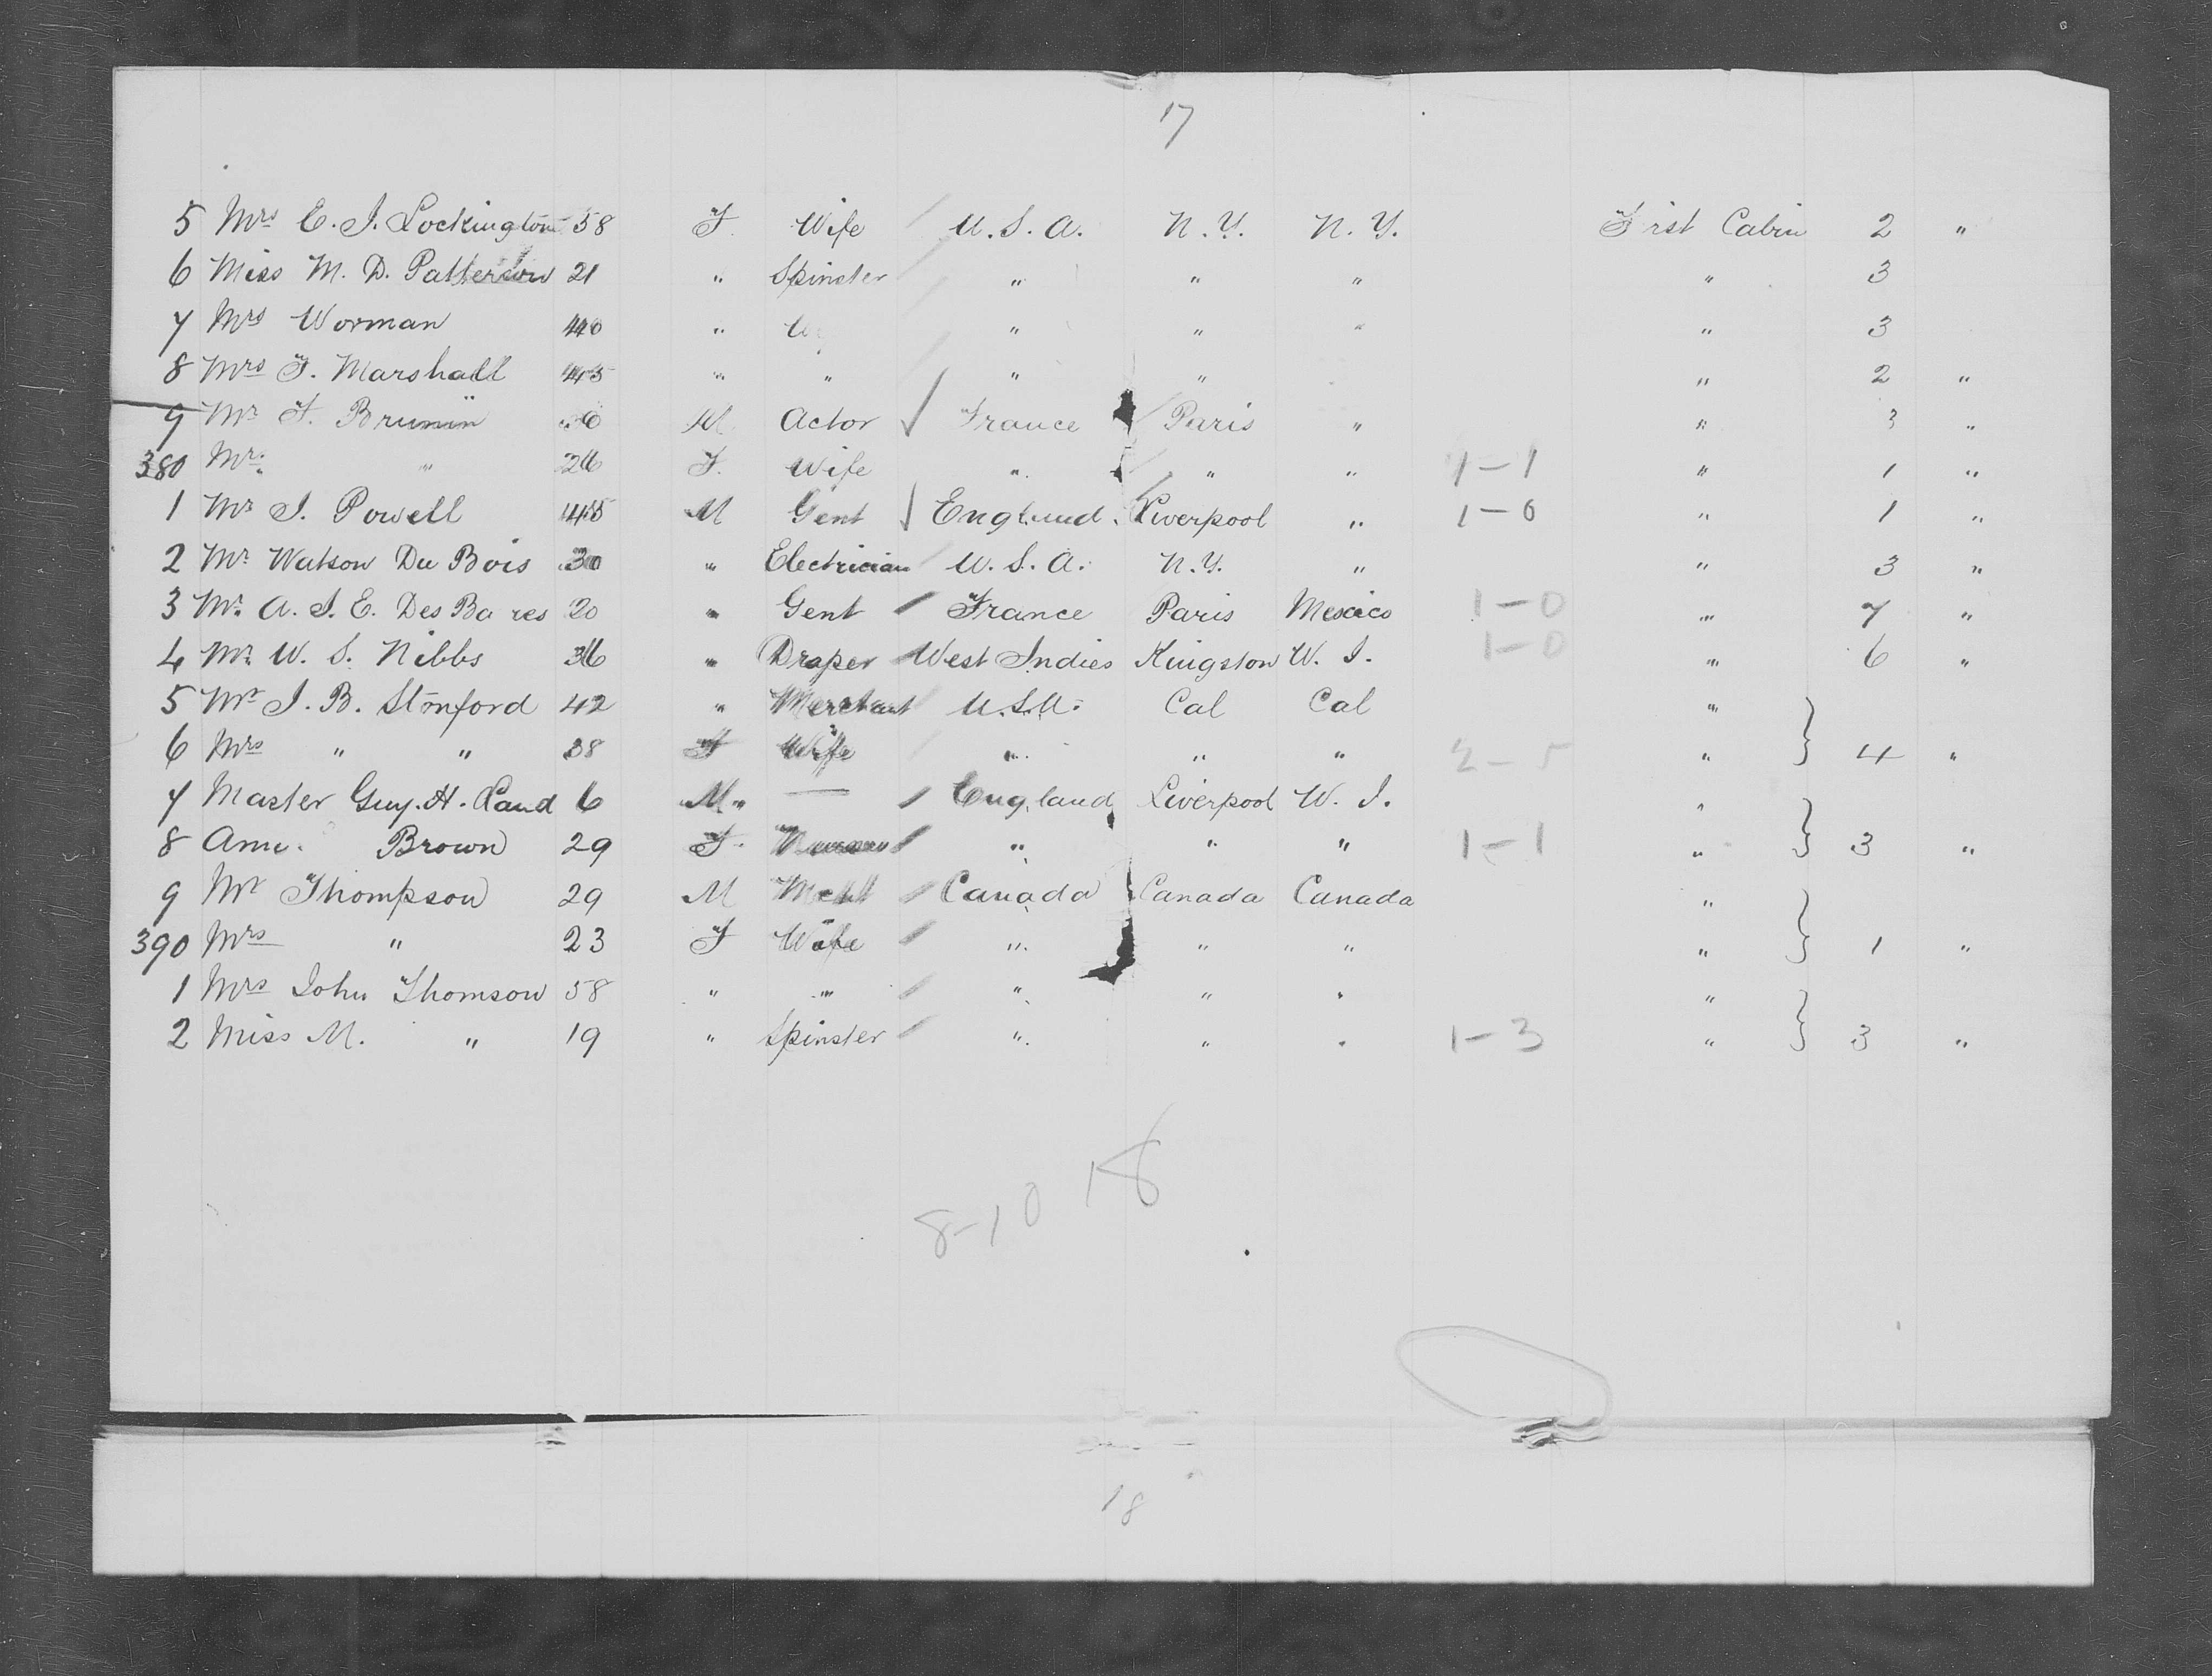 17
5 Mrs E. J. Lockington 58 F. Wife U.S.A. N.Y. N.Y. First Cabin 2 "
6 Miss M. D. Patterson 21 " Spinster " " " " 3
7 Mrs Worman 40 " " " " " 3
8 Mrs F. Marshall 45 " " " " " 2 "
9 Mr F. M Actor France Paris " " 3 "
380 Mr. " 26 F. Wife " " " 1-1 " 1 "
1 Mr J. Powell 45 M Gent England Liverpool " 1-0 " 1 "
2 Mr Watson Du Bois 30 " Electrician U.S.A. N.Y. " " 3 "
3 Mr. A. J. E. Des Ba res 20 " Gent France Paris Mexico 1-0 " 7 "
4 Mr W. S. Nibbs 36 " Draper West Indies Kingston W. I. 1-0 " 6 "
5 Mr J. B. Stonford 42 " Merchant U.S.A. Cal Cal "
6 Mrs " " 38 F Wife " " " " 4 "
7 Master Guy. H. 6 M. — England Liverpool W. I. "
8 Brown 29 F. " " " 1-1 " 3 "
9 Mr Thompson 29 M Canada Canada Canada "
390 Mrs " 23 F Wife " " " " 1 "
1 Mrs John Thomson 58 " " " " " "
2 Miss M. " 19 " Spinster " " " 1-3 " 3 "
8-10 18
18